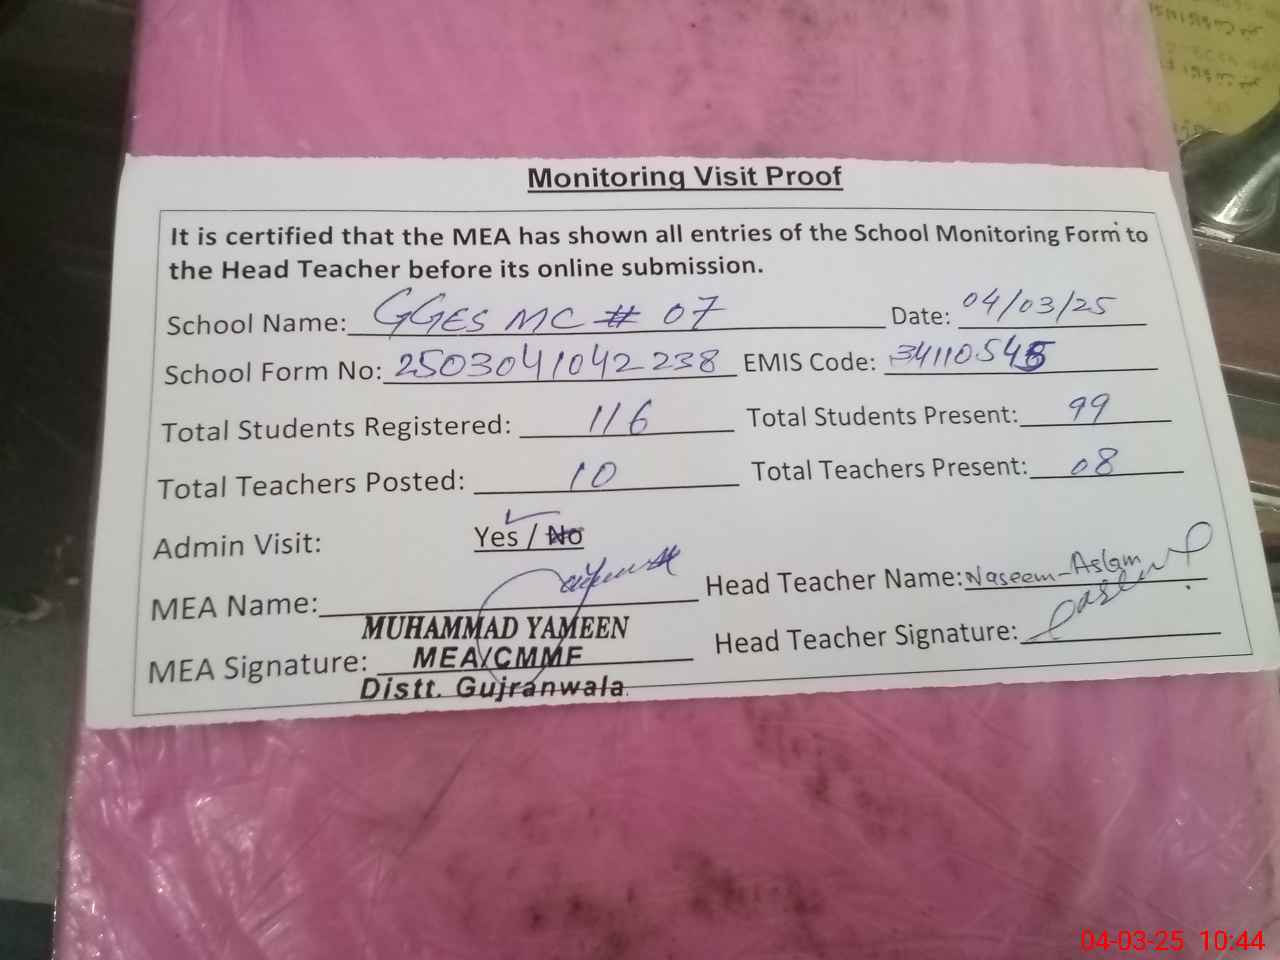 Monitoring Visit Proof
It is certified that the MEA has shown all entries of the School Monitoring Form to
the Head Teacher before its online submission.
School Name: GGES MC # 07 Date: 04/03/25
School Form No: 2503041042238 EMIS Code: 34110545
Total Students Registered: 116 Total Students Present: 99
Total Teachers Posted: 10 Total Teachers Present: 08
Admin Visit: Yes / No
MEA Name: Head Teacher Name: Naseem Aslam
MUHAMMAD YAMEEN
MEA Signature: MEA/CMMF Head Teacher Signature:
Distt. Gujranwala.
04-03-25 10:44